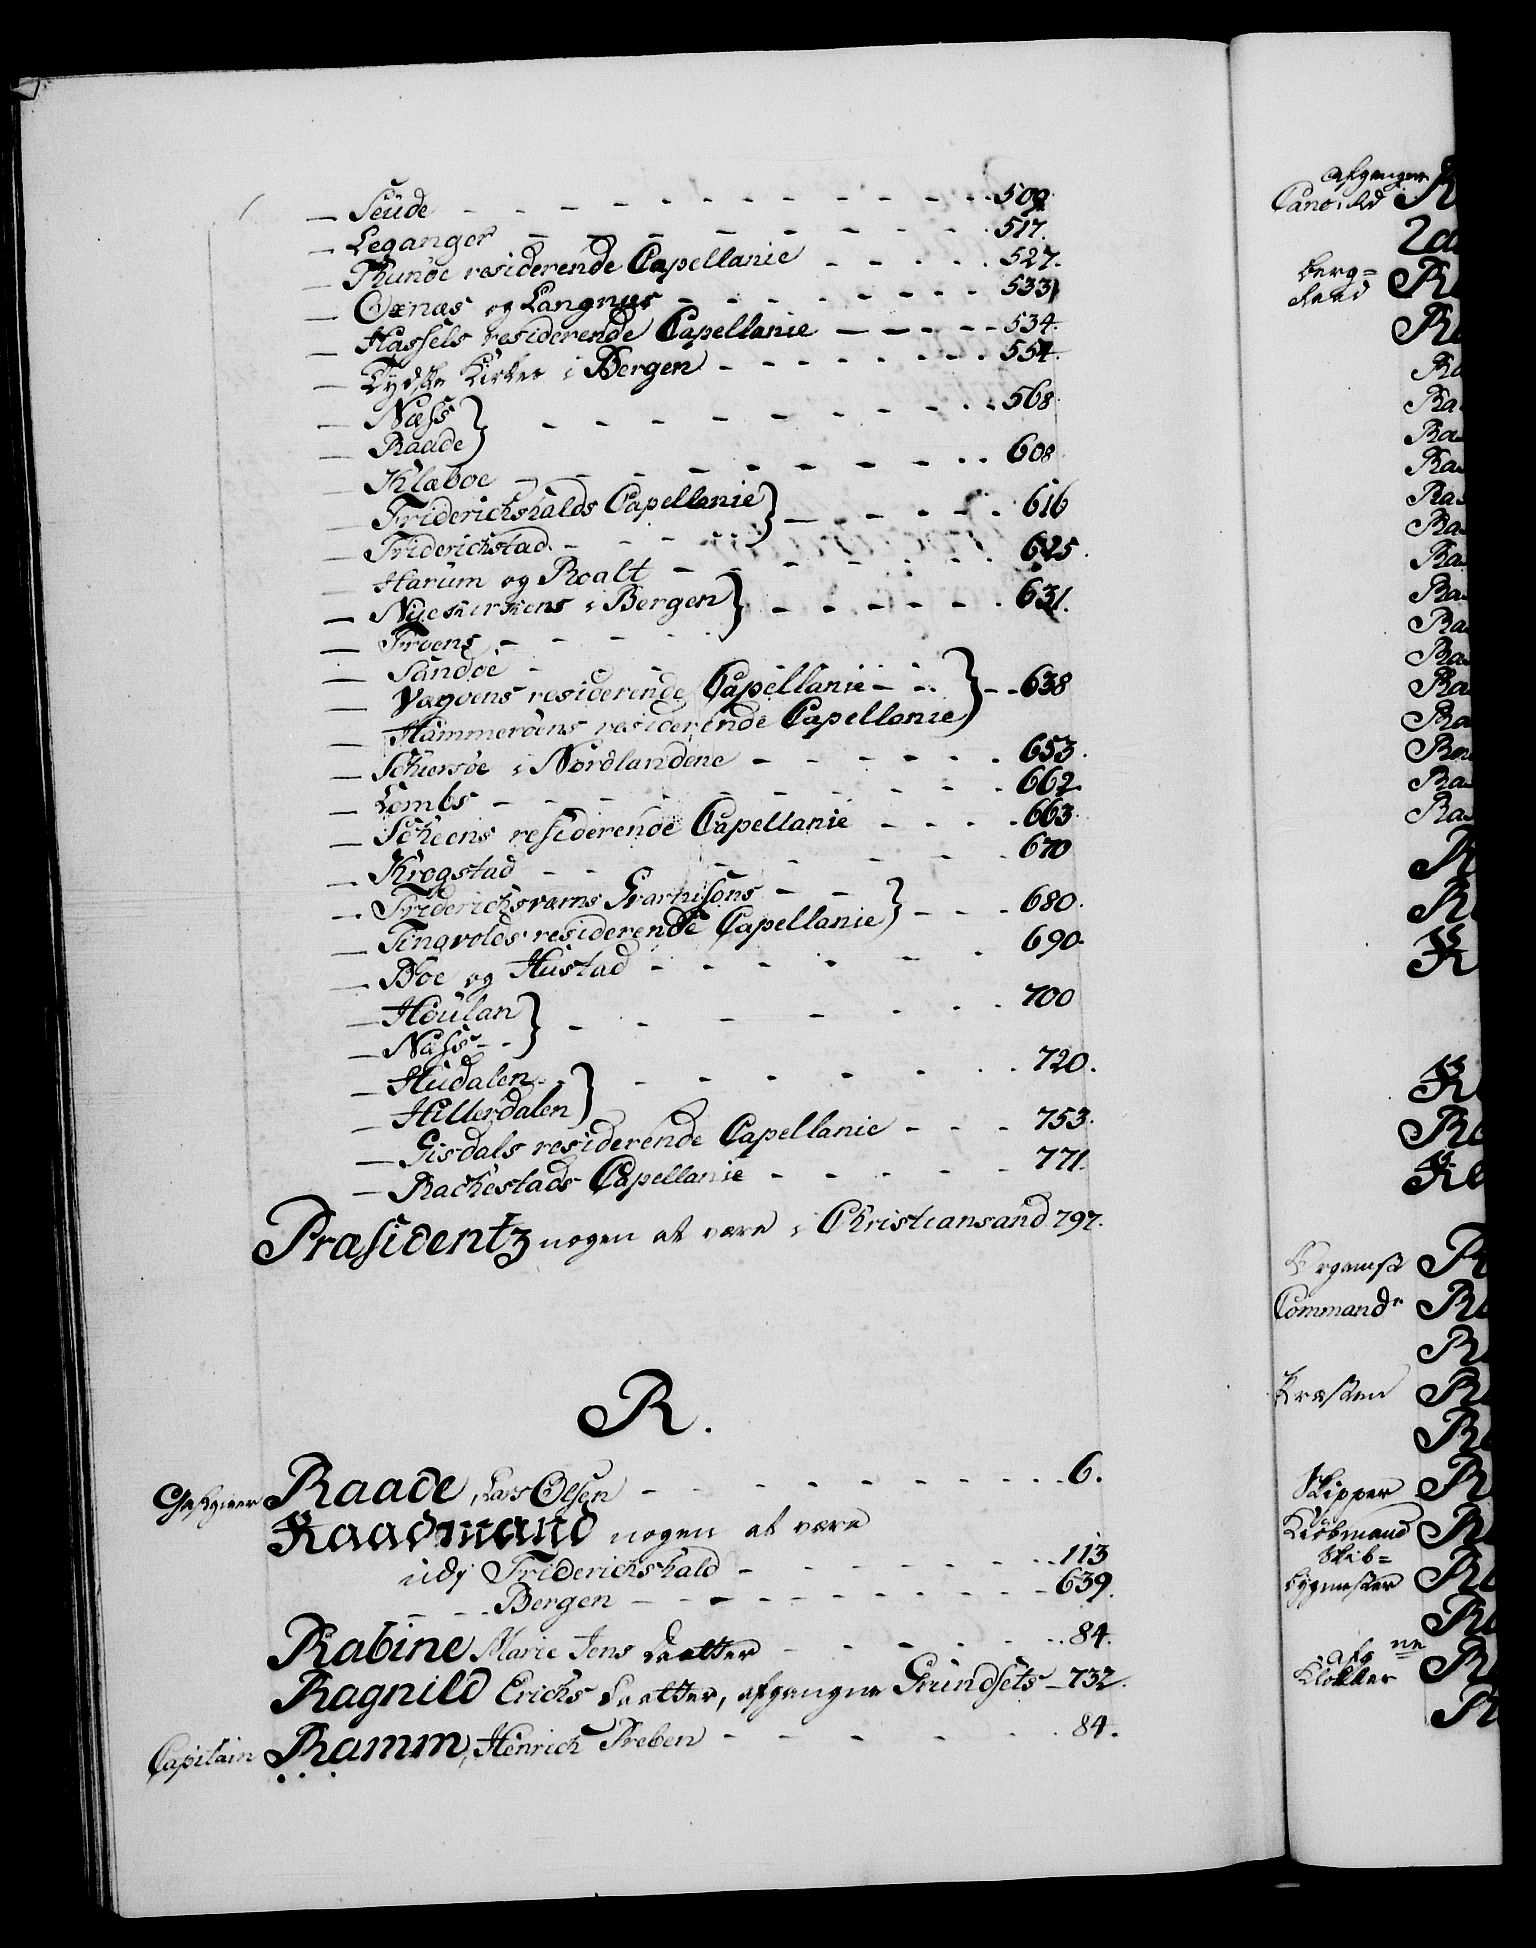 — Seude - - - - 509.
— Leganger - - - - 517.
— Thunøe residerende Capellanie - - - - 527.
— Öxnæs og Langnæs - - - - 533
— Hassels residerende Capellanie - - - - 534.
— Tydske Kirke i Bergen - - - - 554.
— Næss } - - - - 568.
— Raade }
— Klæboe - - - - 608.
— Friderichshalds Capellanie } - - - - 616
— Friderichstad - - - }
— Harum og Roalt - - - - 625.
— Nyekirkens i Bergen } - - - - 631.
— Froens - - - }
— Sandøe -
— Vagøens residerende Capellanie - - } - - 638
— Hammerøens residerende Capellanie }
— Schiersøe i Nordlandene - - - - 653.
— Lombs - - - - 662.
— Scheens residerende Capellanie - - - - 663.
— Krogstad - - - - 670
— Friderichsværns Guarnisons - - } - - - 680.
— Tingvolds residerende Capellanie }
— Boe og Hustad - - - - 690.
— Houlan } - - - - 700
— Næss - - }
— Hudalen - - } - - - - 720.
— Hillerdalen }
— Gisdals residerende Capellanie - - - 753.
— Rachestads Capellanie - - - - 771.
Præsidentz nogen at være i Christiansand 797.
R.
Giestgiver Raade, Lars Olsen - - - - 6.
Raadmand nogen at være
udj Friderichshald - - - - 113
- - - Bergen - - - - 639.
Rabine Marie Jens daatter - - - - 84.
Ragnild Erichs daatter, afgangne Grundsets - 732.
Capitain Ramm, Henrich Preben - - - - 84.
afgangen
R
berg=
Raad R
R
Ra
Ra
Ra
Ra
Ra
Ra
Ra
Ra
Ra
Ra
Ra
Ra
Ra
Ra
R
R
R
R
R
R
Organist R
Commandr R
R
R
R
Skipper R
Kiøbmand R
Skib=
bygmester R
R
afg ne
Klokker R
R